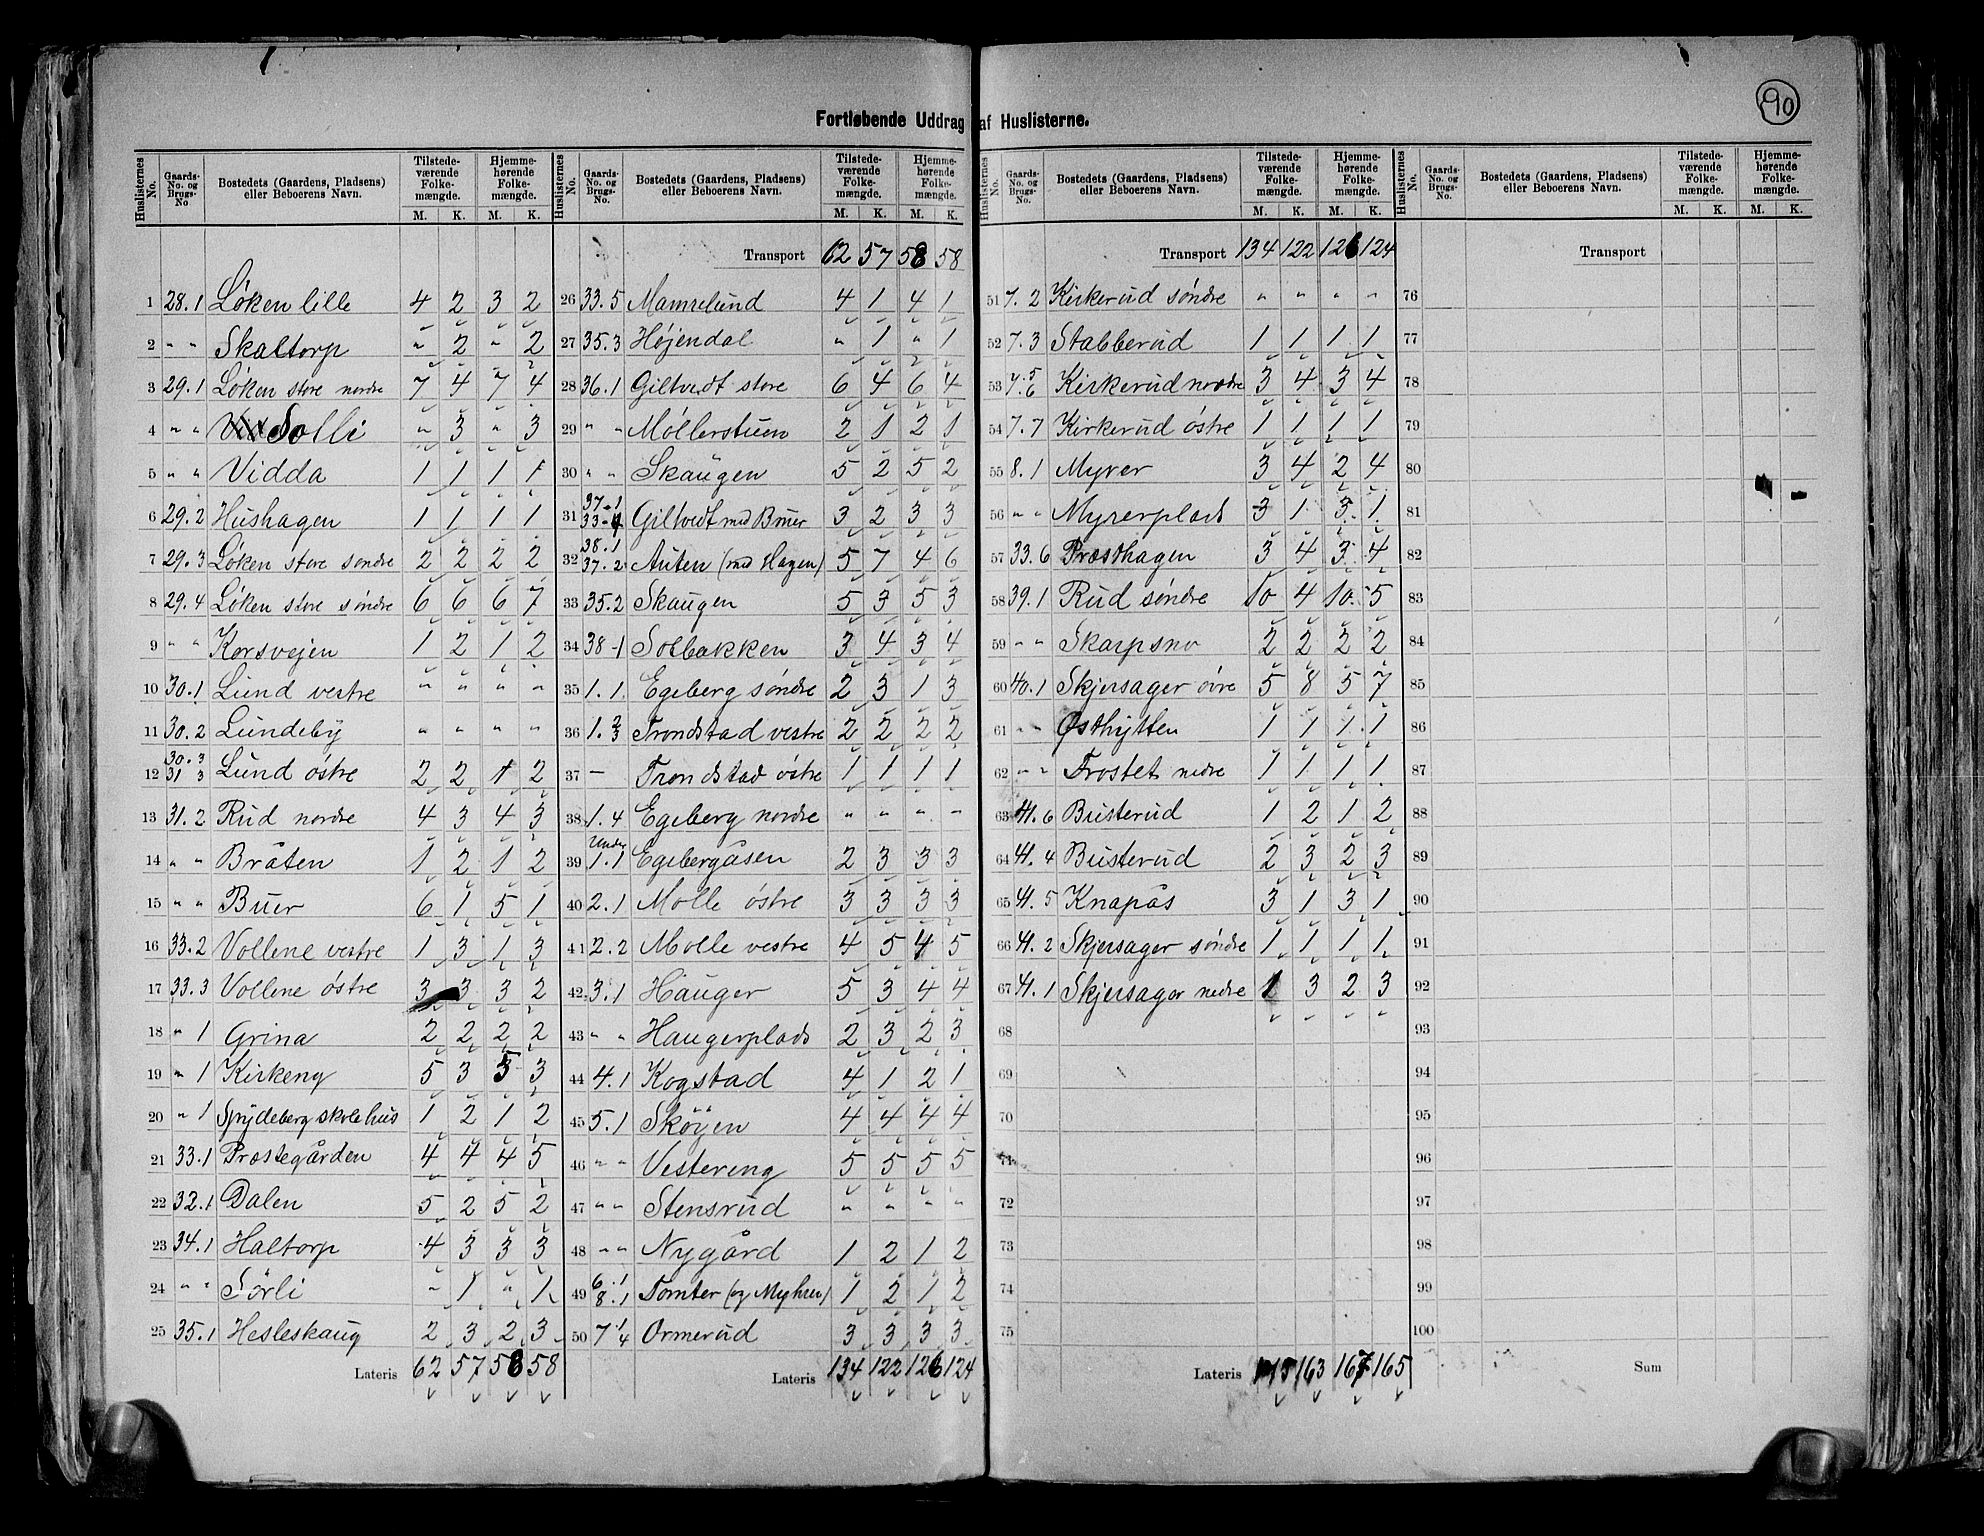 90
Fortløbende Uddrag af Huslisterne.
Huslisternes No. | Gaards-No. og Brugs-No | Bostedets (Gaardens, Pladsens) eller Beboerens Navn. | Tilstedeværende Folkemængde. M. K. | Hjemmehørende Folkemængde. M. K.
1 28.1 Løken lille 4 2 3 2
2 " " Skaltorp " 2 " 2
3 29.1 Løken store nordre 7 4 7 4
4 " " Solli " 3 " 3
5 " " Vidda 1 1 1 1
6 29.2 Hushagen 1 1 1 1
7 29.3 Løken store søndre 2 2 2 2
8 29.4 Løken store søndre 6 6 6 7
9 " " Korsvejen 1 2 1 2
10 30.1 Lund vestre " " " "
11 30.2 Lundeby " " " "
12 30.3 31 3 Lund østre 2 2 1 2
13 31.2 Rud nordre 4 3 4 3
14 " " Bråten 1 2 1 2
15 " " Buer 6 1 5 1
16 33.2 Vollene vestre 1 3 1 3
17 33.3 Vollene østre 3 3 3 2
18 " 1 Grina 2 2 2 2
19 " 1 Kirkeng 5 3 5 3
20 " 1 Spydeberg skolehus 1 2 1 2
21 33.1 Præstegården 4 4 4 5
22 32.1 Dalen 5 2 5 2
23 34.1 Haltorp 4 3 3 3
24 " " Sørli " 1 " 1
25 35.1 Hesleskaug 2 3 2 3
Lateris 62 57 58 58
Huslisternes No. | Gaards-No. og Brugs-No. | Bostedets (Gaardens, Pladsens) eller Beboerens Navn. | Tilstedeværende Folkemængde. M. K. | Hjemmehørende Folkemængde. M. K.
Transport 62 57 58 58
26 33.5 Mamrelund 4 1 4 1
27 35.3 Højendal " 1 " 1
28 36.1 Giltvedt store 6 4 6 4
29 " " Møllerstuen 2 1 2 1
30 " " Skaugen 5 2 5 2
31 37-1 33-4 Giltvedt med Buer 3 2 3 3
32 38.1 37.2 Auten (med Hagen) 5 7 4 6
33 35.2 Skaugen 5 3 5 3
34 38-1 Solbakken 3 4 3 4
35 1.1 Egeberg søndre 2 3 1 3
36 1.2 3 Trondstad vestre 2 2 2 2
37 — Trondstad østre 1 1 1 1
38 1.4 Egeberg nordre " " " "
39 Under 1.1 Egebergåsen 2 3 3 3
40 2.1 Molle østre 3 3 3 3
41 2.2 Molle vestre 4 5 4 5
42 3.1 Hauger 5 3 4 4
43 " " Haugerplads 2 3 2 3
44 4.1 Kogstad 4 1 2 1
45 5.1 Skøyen 4 4 4 4
46 " " Vestereng 5 5 5 5
47 " " Stensrud " " " "
48 " " Nygård 1 2 1 2
49 6.1 8.1 Tomter (og Myhrer) 1 2 1 2
50 7 1/4 Ormerud 3 3 3 3
Lateris 134 122 126 124
Huslisternes No. | Gaards-No. og Brugs-No. | Bostedets (Gaardens, Pladsens) eller Beboerens Navn. | Tilstedeværende Folkemængde. M. K. | Hjemmehørende Folkemængde. M. K.
Transport 134 122 126 124
51 7.2 Kirkerud søndre " " " "
52 7.3 Stabberud 1 1 1 1
53 7.5 6 Kirkerud nordre 3 4 3 4
54 7.7 Kirkerud østre 1 1 1 1
55 8.1 Myrer 3 4 2 4
56 " " Myrerplads 3 1 3 1
57 33.6 Præsthagen 3 4 3 4
58 39.1 Rud søndre 10 4 10 5
59 " " Skarpsno 2 2 2 2
60 40.1 Skjersager øvre 5 8 5 7
61 " " Østhytten 1 1 1 1
62 " " Frostet nedre 1 1 1 1
63 41.6 Busterud 1 2 1 2
64 41.4 Busterud 2 3 2 3
65 41.5 Knapås 3 1 3 1
66 41.2 Skjersager søndre 1 1 1 1
67 41.1 Skjersager nedre 1 3 2 3
68
69
70
71
72
73
74
75
Lateris 175 163 167 165
Huslisternes No. | Gaards-No. og Brugs-No. | Bostedets (Gaardens, Pladsens) eller Beboerens Navn. | Tilstedeværende Folkemængde. M. K. | Hjemmehørende Folkemængde. M. K.
Transport
76
77
78
79
80
81
82
83
84
85
86
87
88
89
90
91
92
93
94
95
96
97
98
99
100
Sum